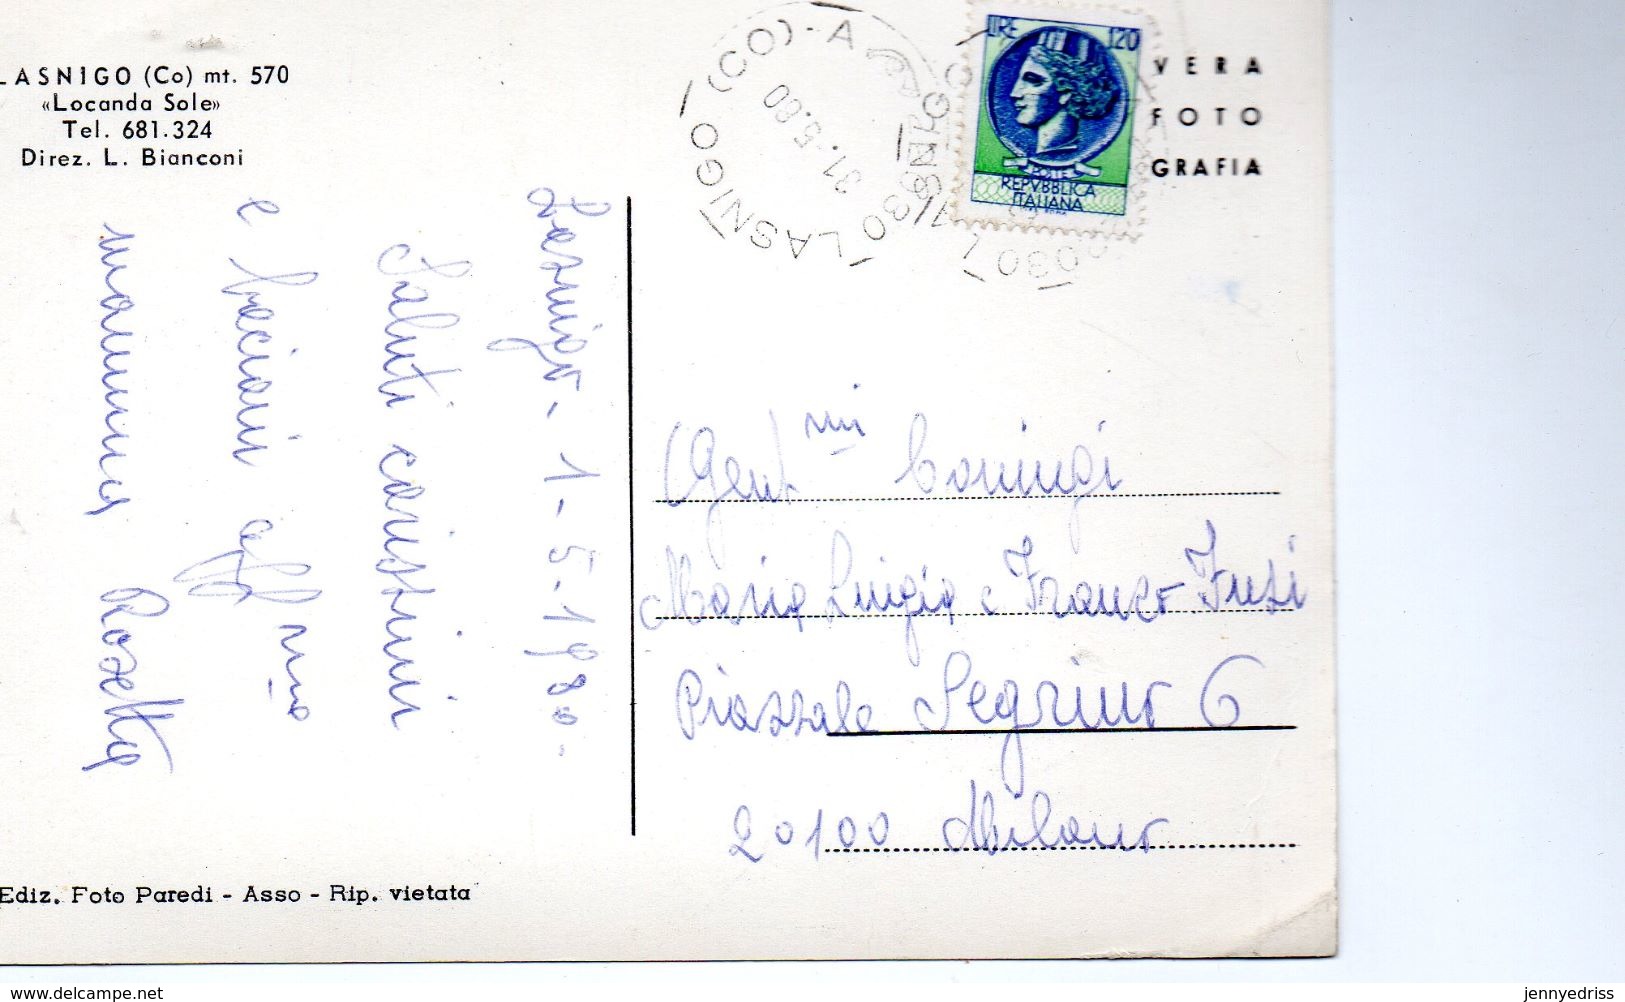 LASNIGO (Co) mt. 570
«Locanda Sole»
Tel. 681.324
Direz. L. Bianconi
LASNIGO (CO) - A
31.5.80
LIRE 120
POSTE
REPVBBLICA
ITALIANA
VERA
FOTO
GRAFIA
Lasnigo - 1-5-1980-
Saluti carissimi
e bacioni aff mo
mamma Rosetta
Gent mi Coniugi
Maria Luigia e Franco Fusi
Piazzale Segrino 6
20100 Milano
Ediz. Foto Paredi - Asso - Rip. vietata
delcampe.net
jennyedriss